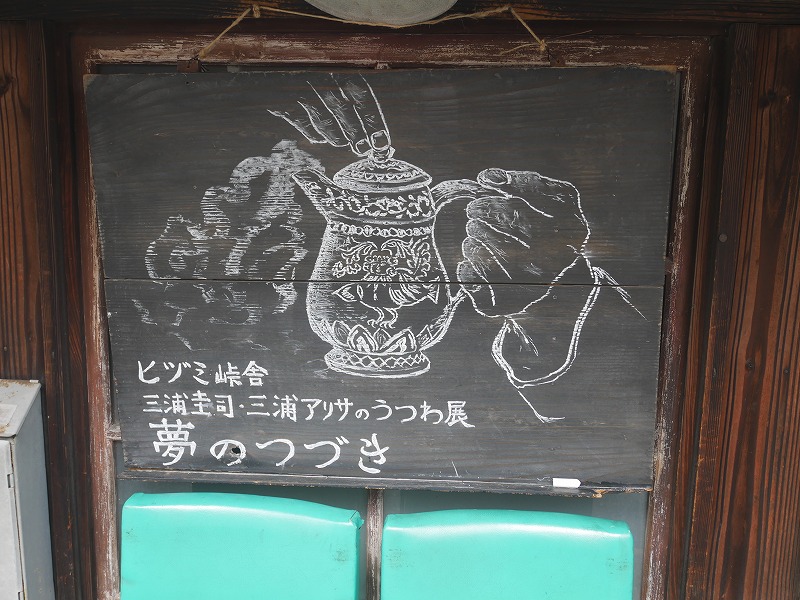 ヒヅミ峠舎
三浦圭司・三浦アリサのうつわ展
夢のつづき